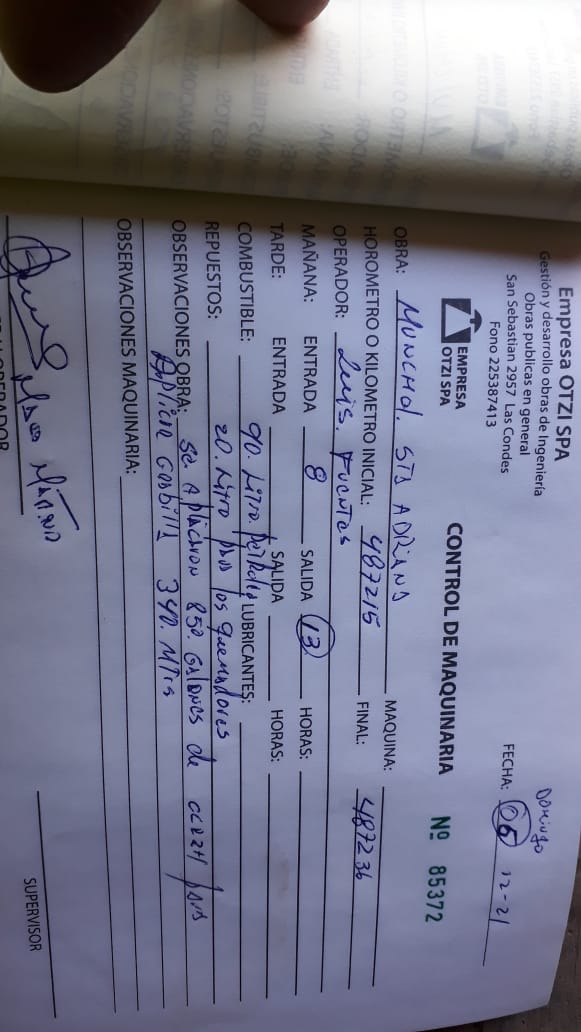 Empresa OTZI SPA
Gestión y desarrollo obras de Ingeniería
Obras publicas en general
San Sebastian 2957 Las Condes
Fono 225387413
EMPRESA
OTZI SPA
Domingo
FECHA: 05 12-21
CONTROL DE MAQUINARIA Nº 85372
OBRA: MUNCHOL. STA ADRIANA MAQUINA:
HOROMETRO O KILOMETRO INICIAL: 487215 FINAL: 487236
OPERADOR: Luis. Fuentes
MAÑANA: ENTRADA 8 SALIDA 13 HORAS:
TARDE: ENTRADA SALIDA HORAS:
COMBUSTIBLE: 90. Litro. Petroleo LUBRICANTES:
REPUESTOS: 20. Litro para los quemadores
OBSERVACIONES OBRA: Se Aplicaron 850 Galones de para
Aplicar Gravilla 340. Mtrs
OBSERVACIONES MAQUINARIA:
OPERADOR
SUPERVISOR